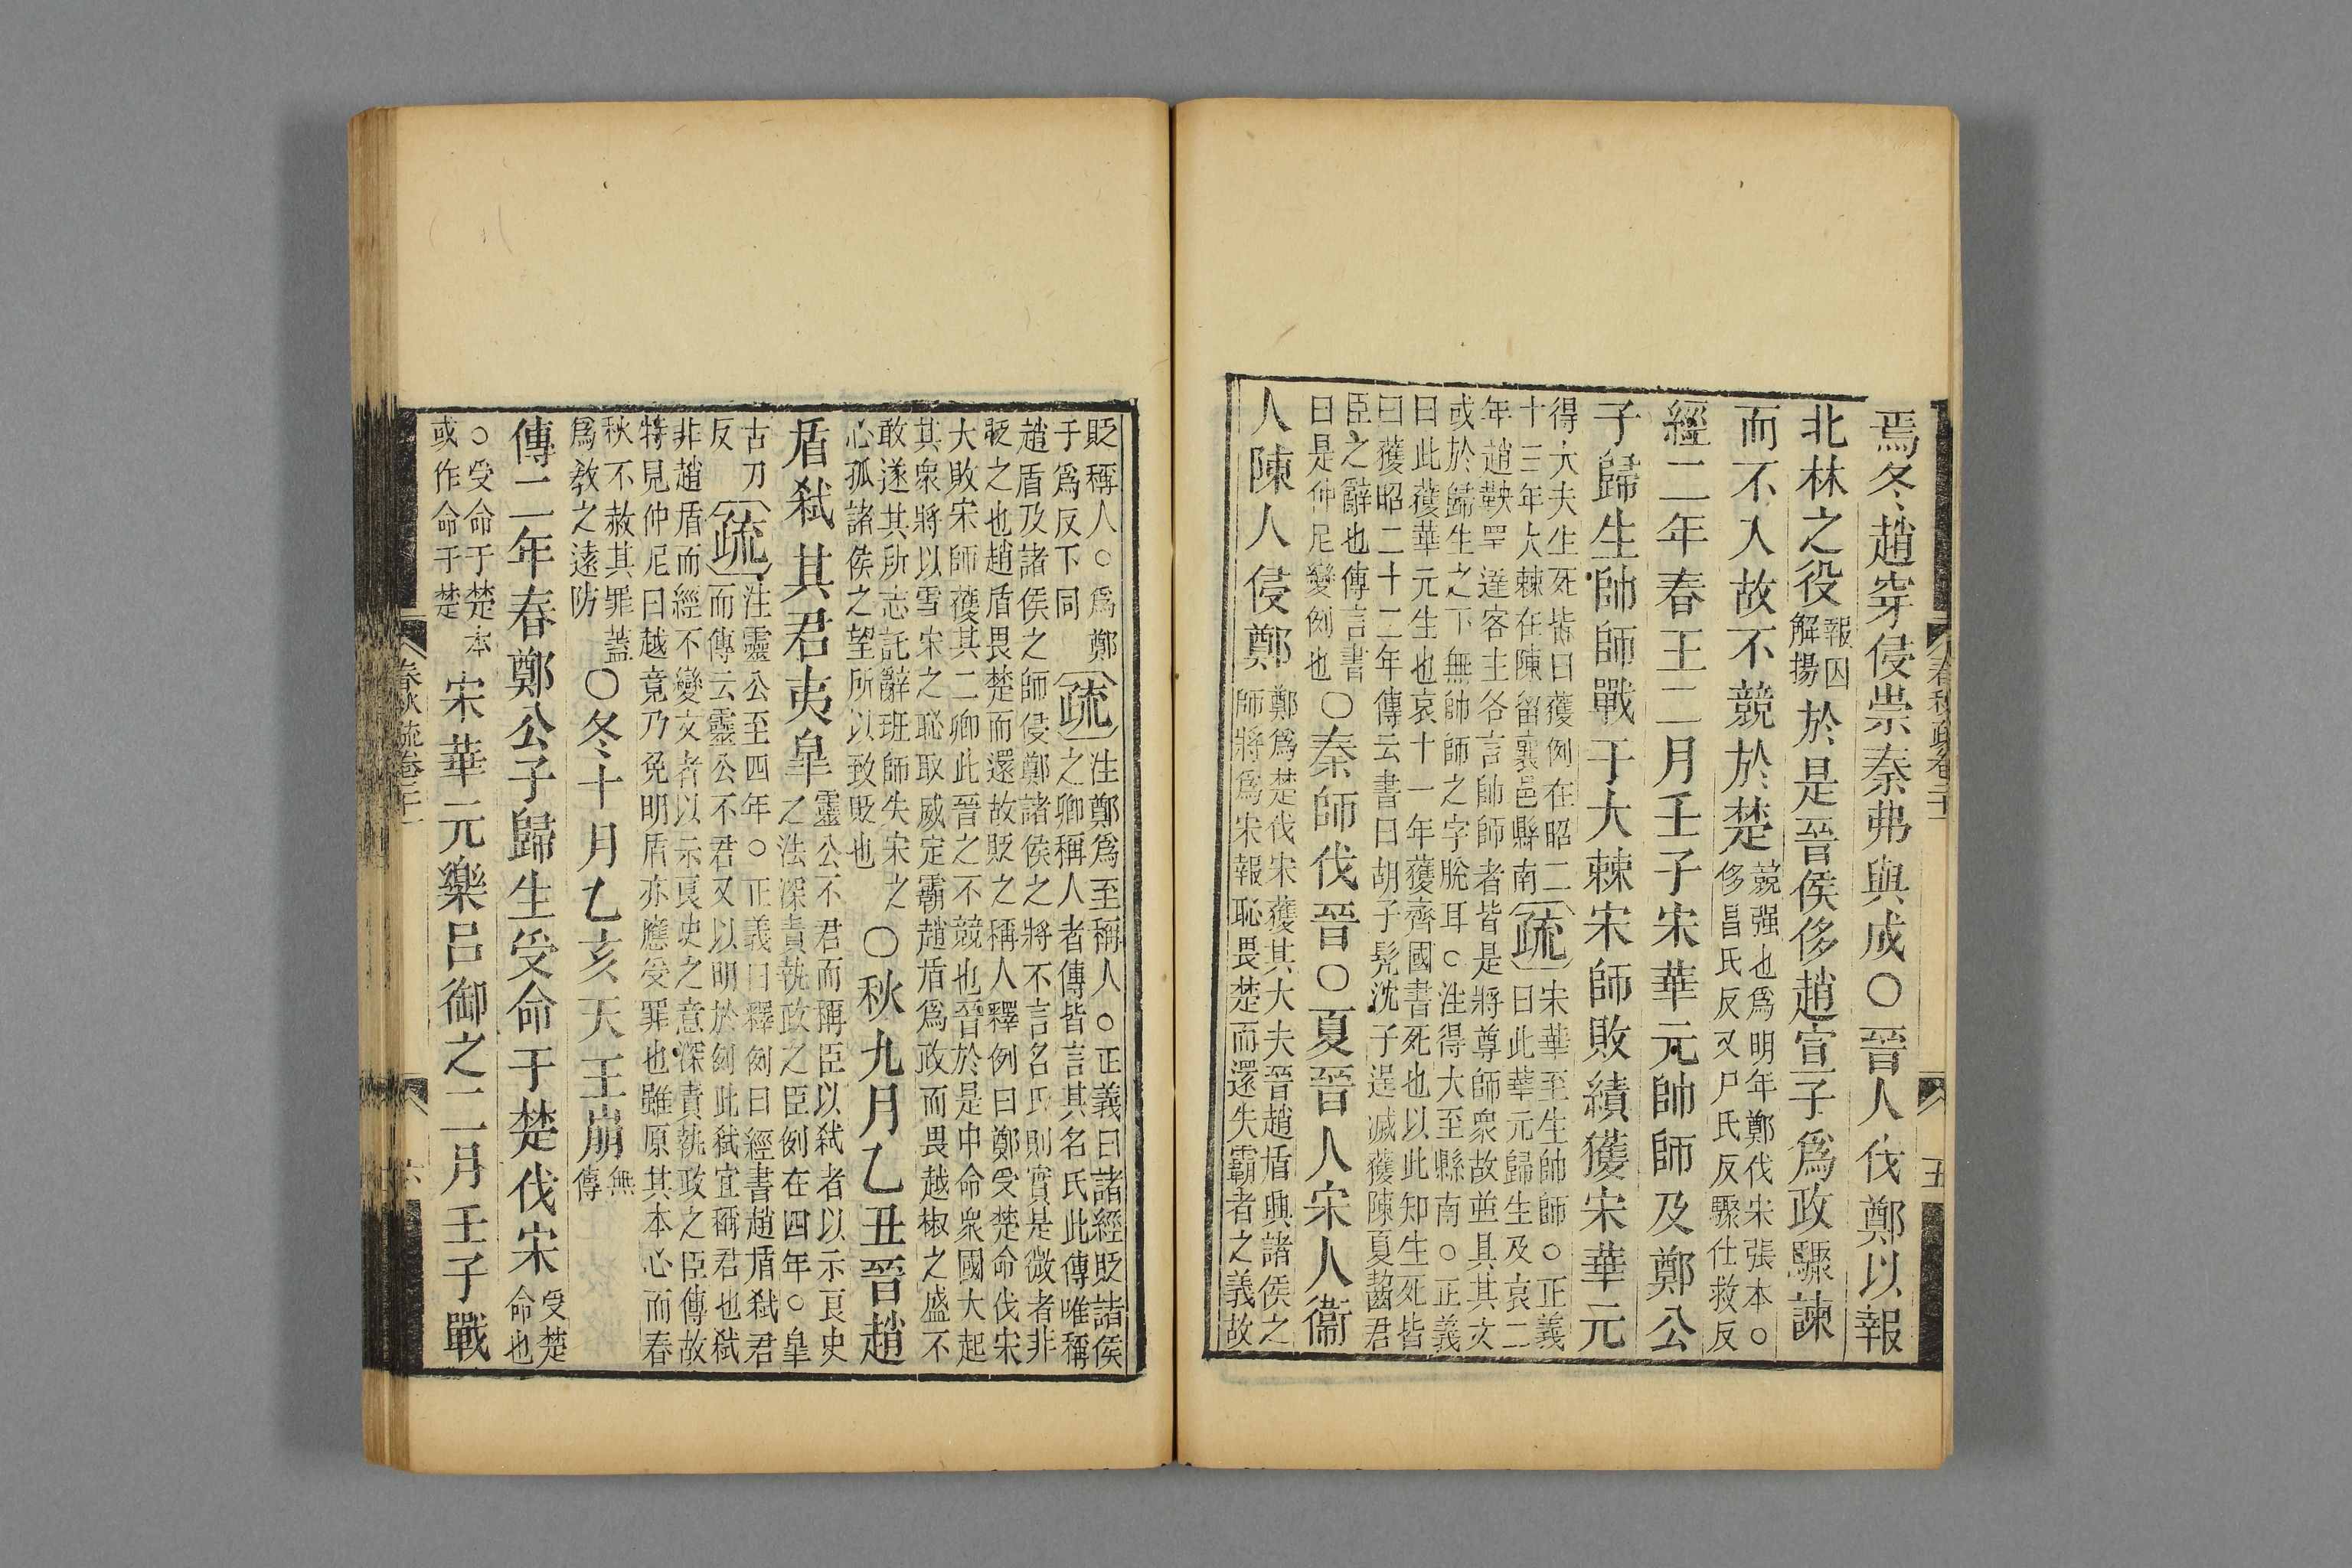 焉冬趙穿侵崇秦弗與成○晉人伐鄭以報
北林之役報囚解揚於是晉侯侈趙宣子爲政驟諫
而不入故不競於楚競强也爲明年鄭伐宋張本○侈昌氏反又尸氏反驟仕救反
經二年春王二月壬子宋華元帥師及鄭公
子歸生帥師戰于大棘宋師敗績獲宋華元
得大夫生死皆曰獲例在昭二
十三年大棘在陳留襄邑縣南疏宋華至生帥師○正義
曰此華元歸生及哀二
年趙鞅罕達客主各言帥師者皆是將尊師衆故並具其文
或於歸生之下無帥師之字脫耳○注得大至縣南○正義
曰此獲華元生也哀十一年獲齊國書死也以此知生死皆
曰獲昭二十二年傳云書曰胡子髡沈子逞滅獲陳夏齧君
臣之辭也傳言書
曰是仲尼變例也○秦師伐晉○夏晉人宋人衞
人陳人侵鄭鄭爲楚伐宋獲其大夫晉趙盾與諸侯之師將爲宋報恥畏楚而還失霸者之義故
春秋疏卷二十一
五
貶稱人○爲鄭
于爲反下同疏注鄭爲至稱人○正義曰諸經貶諸侯
之卿稱人者傳皆言其名氏此傳唯稱
趙盾及諸侯之師侵鄭諸侯之將不言名氏則實是微者非
貶之也趙盾畏楚而還故貶之稱人釋例曰鄭受楚命伐宋
大敗宋師獲其二卿此晉之不競也晉於是申命衆國大起
其衆將以雪宋之恥取威定霸趙盾爲政而畏越椒之盛不
敢遂其所志託辭班師失宋之
心孤諸侯之望所以致貶也○秋九月乙丑晉趙
盾弑其君夷皐靈公不君而稱臣以弑者以示良史之法深責執政之臣例在四年○皐
古刀
反疏注靈公至四年○正義曰釋例曰經書趙盾弑君
而傳云靈公不君又以明於例此弑宜稱君也弑
非趙盾而經不變文者以示良史之意深責執政之臣傳故
特見仲尼曰越竟乃免明盾亦應受罪也雖原其本心而春
秋不赦其罪蓋
爲教之遠防○冬十月乙亥天王崩無傳
傳二年春鄭公子歸生受命于楚伐宋受楚命也
○受命于楚本
或作命于楚宋華元樂呂御之二月壬子戰
春秋疏卷二十一
六